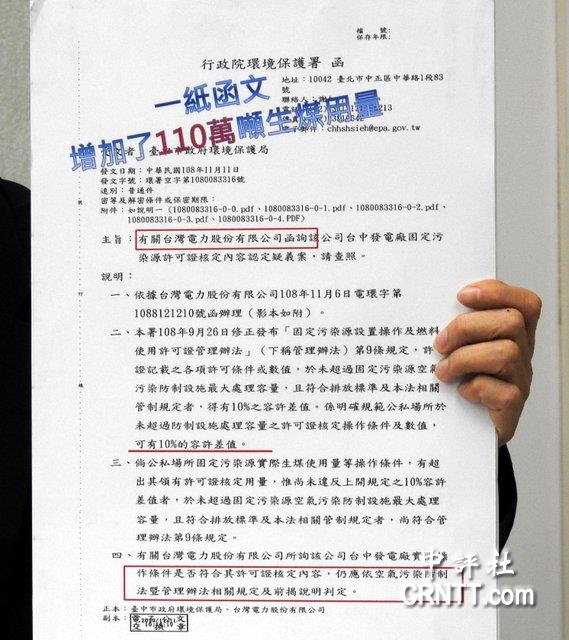 檔　號:
保存年限:
行政院環境保護署 函
地址：10042 臺北市中正區中華路1段83
號
聯絡人：謝
213
電子郵件：chhshsieh@epa.gov.tw
一紙函文
增加了110萬噸生煤用量
受文者：臺北市政府環境保護局
發文日期：中華民國108年11月11日
發文字號：環署空字第1080083316號
速別：普通件
密等及解密條件或保密期限：
附件：如說明一 (1080083316-0-0.pdf、1080083316-0-1.pdf、1080083316-0-2.pdf、
1080083316-0-3.pdf、1080083316-0-4.PDF)
主旨：有關台灣電力股份有限公司函詢該公司台中發電廠固定污
染源許可證核定內容認定疑義案，請查照。
說明：
一、依據台灣電力股份有限公司108年11月6日電環字第
1088121210號函辦理（影本如附）。
二、本署108年9月26日修正發布「固定污染源設置操作及燃料
使用許可證管理辦法」（下稱管理辦法）第9條規定，許
證記載之各項許可條件或數值，於未超過固定污染源空氣
污染防制設施最大處理容量，且符合排放標準及本法相關
管制規定者，得有10%之容許差值。係明確規範公私場所於
未超過防制設施處理容量之許可證核定操作條件及數值，
可有10%的容許差值。
三、倘公私場所固定污染源實際生煤使用量等操作條件，有超
出其領有許可證核定用量，惟尚未違反上開規定之10%容許
差值者，於未超過固定污染源空氣污染防制設施最大處理
容量，且符合排放標準及本法相關管制規定者，尚符合管
理辦法第9條規定。
四、有關台灣電力股份有限公司所詢該公司台中發電廠實
作條件是否符合其許可證核定內容，仍應依空氣污染防制
法暨管理辦法相關規定及前揭說明判定。
正本：臺中市政府環境保護局、台灣電力股份有限公司
副本：
電 文
交 換 章
中評社
CRNTT.com